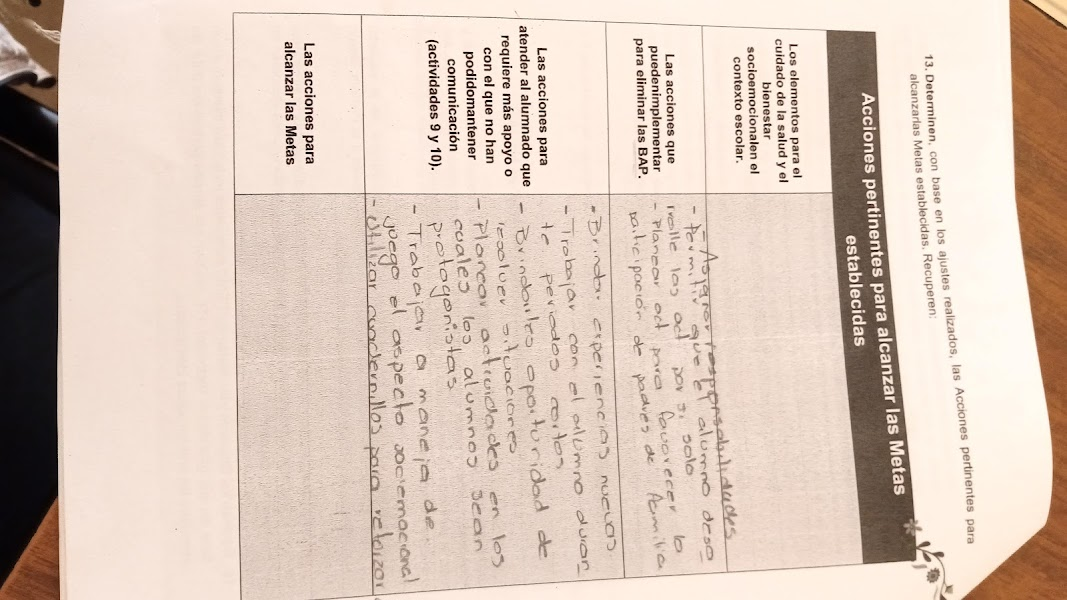 13. Determinen, con base en los ajustes realizados, las Acciones pertinentes para
alcanzarlas Metas establecidas. Recuperen:
Acciones pertinentes para alcanzar las Metas
establecidas
Los elementos para el
cuidado de la salud y el
bienestar
socioemocionalen el
contexto escolar.
- Asignar responsabilidades
Las acciones que
puedenimplementar
para eliminar las BAP.
- Permitir que el alumno desa
rrolle las act por si solo
- Planear act para favorecer la
participación de padres de familia
Las acciones para
atender al alumnado que
requiere más apoyo o
con el que no han
podidomantener
comunicación
(actividades 9 y 10).
- Brindar experiencias nuevas
- Trabajar con el alumno duran
te periodos cortos
- Brindarles oportunidad de
resolver situaciones
- Planear actividades en los
cuales los alumnos sean
protagonistas
- Trabajar a maneja de
juego el aspecto sociemocional
- Utilizar cuadernillos para reforzar
Las acciones para
alcanzar las Metas